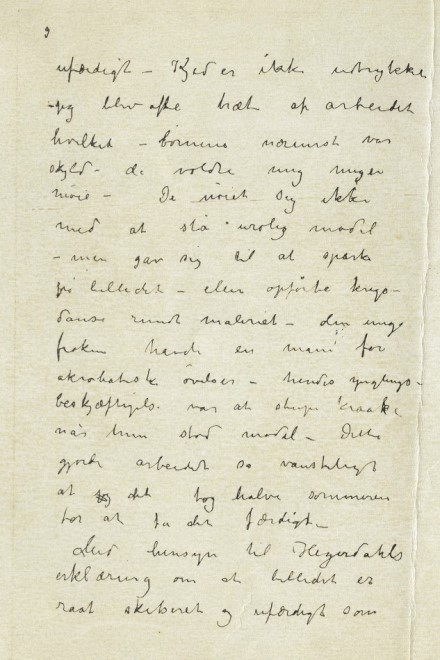 9
ufærdigt – Kjed er ikke udtrykket
– jeg blev ofte træt af arbeidet
hvilket – børnene nærmest var
skyld – de voldte mig megen
møie – De nöiet sig ikke
med at stå urolig model
– men gav sig til at spark
på billedet – eller opförte krigs-
danse rundt maleriet – den unge
frøken havde en mani for
akrobatisk övelser – hendes ynglings-
beskjæftigels. var at slaa kraake
når hun stod model – Dette
gjorde arbeidet så vanskeligt
at det tog halve sommeren
for at få det færdigt –
Med hensyn til Heyerdahls
erklæring om at billedet er
raat skitseret og ufærdigt som